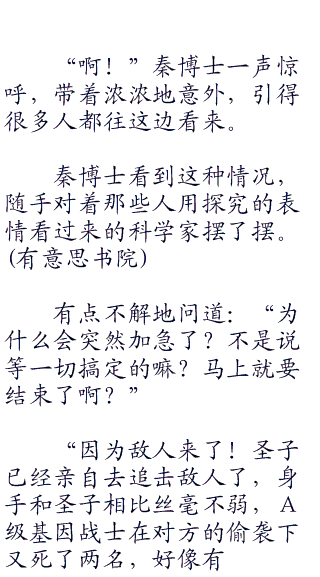 “啊！”秦博士一声惊
呼，带着浓浓地意外，引得
很多人都往这边看来。
秦博士看到这种情况，
随手对着那些人用探究的表
情看过来的科学家摆了摆。
(有意思书院)
有点不解地问道：“为
什么会突然加急了？不是说
等一切搞定的嘛？马上就要
结束了啊？”
“因为敌人来了！圣子
已经亲自去追击敌人了，身
手和圣子相比丝毫不弱，A
级基因战士在对方的偷袭下
又死了两名，好像有